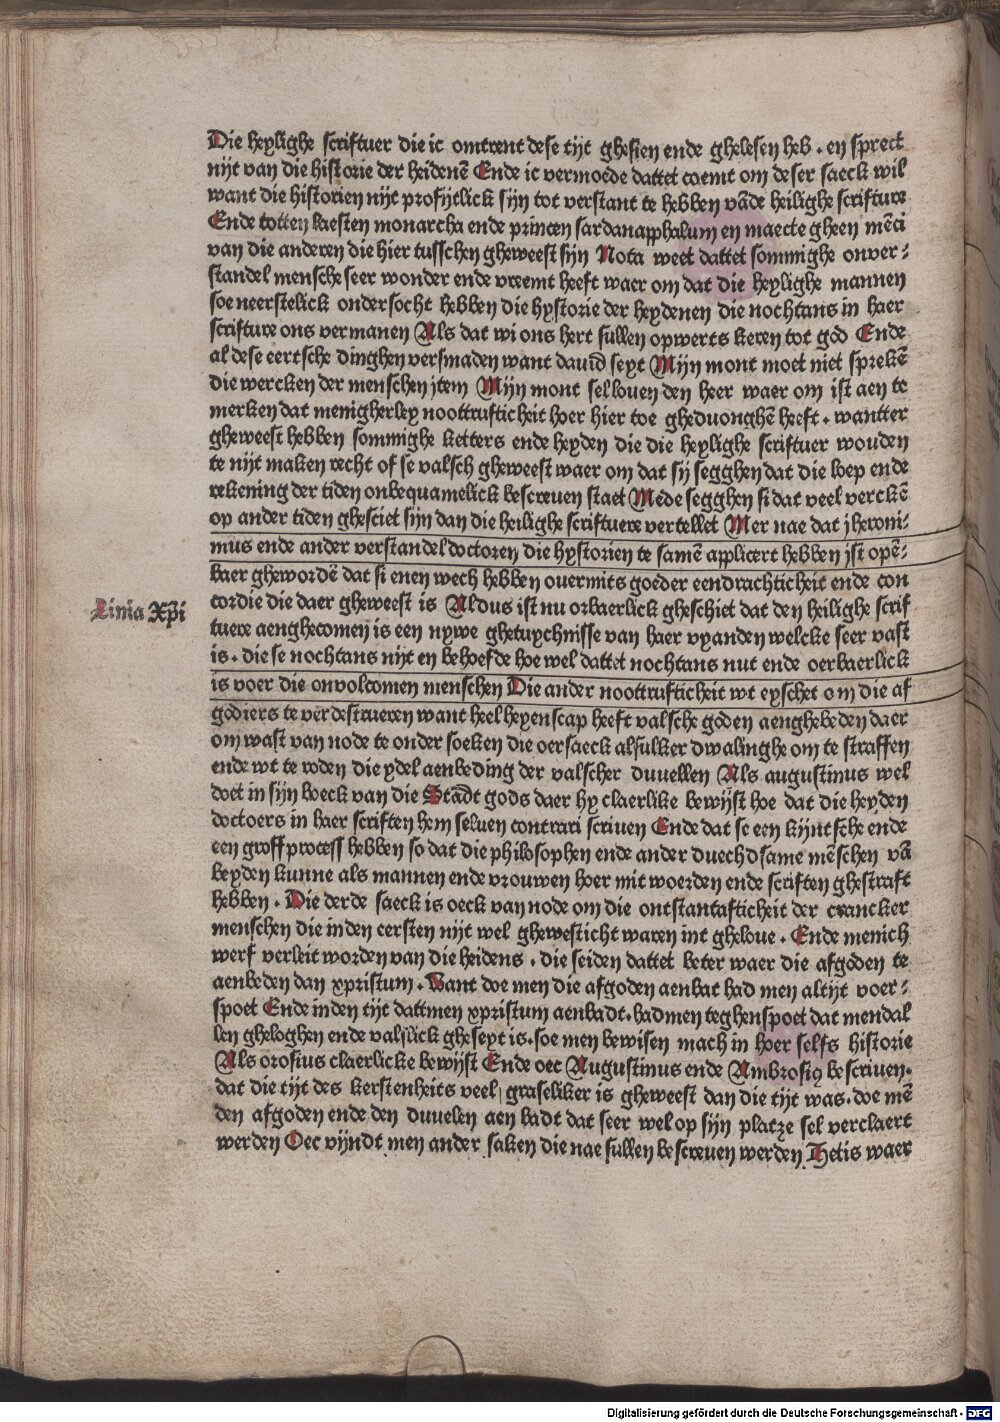 Die heylighe scriftuer die ic omtrent dese tijt ghesien ende ghelesen heb . en sprect
nijt van die historie der heidenē Ende ic vermoede dattet coemt om deser saeck wil
want die historien nijt profijtlick sijn tot verstant te hebben vāde heilighe scrifture
Ende totten laesten monarcha ende princen sardanapphalum en maecte gheen mēci
van die anderen die hier tusschen gheweest sijn Nota weet dattet sommighe onver⸗
standel mensche seer wonder ende vreemt heeft waer om dat die heylighe mannen
soe neerstelick ondersocht hebben die hystorie der heydenen die nochtans in haer
scrifture ons vermanen Als dat wi ons hert sullen opwerts keren tot god Ende
al dese eertsche dinghen versmaden want dauid seyt Mijn mont moet niet sprekē
die wercken der menschen jtem Mijn mont sel louen den heer waer om ist aen te
merken dat menigherley noottrufticheit hoer hier toe gheduonghē heeft . wantter
gheweest hebben sommighe ketters ende heyden die die heylighe scriftuer wouden
te nijt maken recht of se valsch gheweest waer om dat sij segghen dat die loep ende
rekening der tiden onbequamelick bescreuen staet Mede segghen si dat veel verckē
op ander tiden ghesciet sijn dan die heilighe scriftuere vertellet Mer nae dat jheroni⸗
mus ende ander verstandel doctoren die hystorien te samē applicert hebben jst opē⸗
baer ghewordē dat si enen wech hebben ouermits goeder eendrachticheit ende con
cordie die daer gheweest is Aldus ist nu orbaerlick gheschiet dat den heilighe scrif
Linia Xp̄i
tuere aenghecomen is een nywe ghetuychnisse van haer vyanden welcke seer vast
is . die se nochtans nijt en behoefde hoe wel dattet nochtans nut ende oerbaerlick
is voer die onvolcomen menschen Die ander noottrufticheit wt eyschet om die af
godiers te verdestrueren want heel heyenscap heeft valsche goden aenghebeden daer
om wast van node te onder soeken die oersaeck alsulker dwalinghe om te straffen
ende wt te roden die ydel aenbeding der valscher duuellen Als augustinus wel
doet in sijn boeck van die Stadt gods daer hy claerlike bewijst hoe dat die heyden
doctoers in haer scriften hem seluen contrari scriuen Ende dat se een kijntsche ende
een groff process hebben so dat die philosophen ende ander duechdsame mēschen vā
beyden kunne als mannen ende vrouwen hoer mit woerden ende scriften ghestraft
hebben . Die derde saeck is oeck van node om die ontstantafticheit der crancker
menschen die in den eersten nijt wel ghewesticht waren int gheloue . Ende menich
werf verleit worden van die heidens . die seiden dattet beter waer die afgoden te
aenbeden dan xpristum . Want doe men die afgoden aenbat had men altijt voer⸗
spoet Ende in den tijt dattmen xpristum aenbadt . had men teghenspoet dat mendal
len gheloghen ende valslick gheseyt is . soe men bewisen mach in hoer selfs historie
Als orosius claerlicke bewijst Ende oec Augustinus ende Ambrosiꝰ bescriuen .
dat die tijt des kerstenheits veel graseliker is gheweest dan die tijt was . doe mē
den afgoden ende den duuelen aen badt dat seer wel op sijn platze sel verclaert
werden Oec vijndt men ander saken die nae sullen bescreuen werden Het is waer
Digitalisierung gefördert durch die Deutsche Forschungsgemeinschaft - DFG